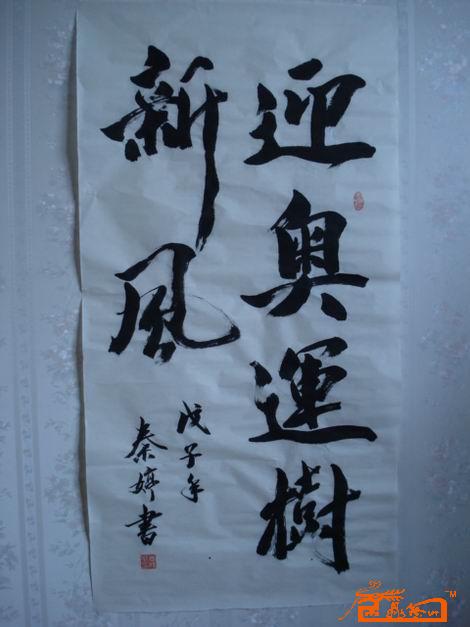 迎奧運樹
新風
戊子年
秦婷書